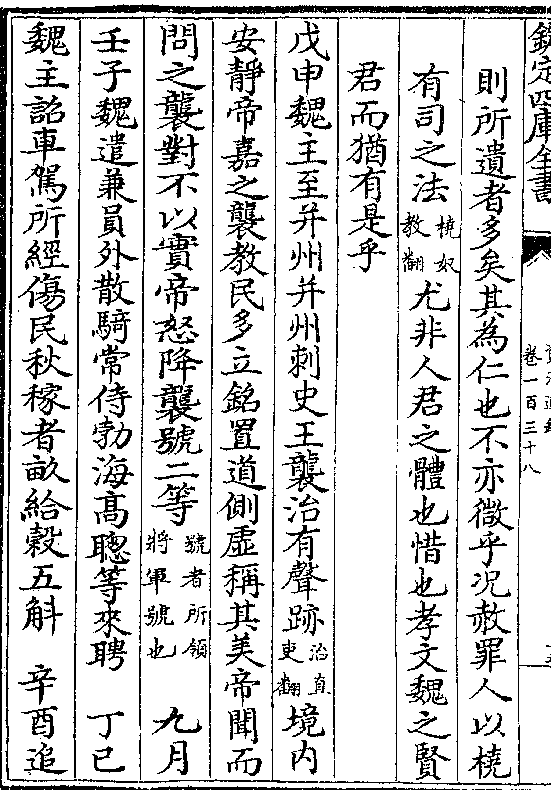 欽定四庫全書
卷一百三十八
則所遺者多矣其為仁也不亦微乎況赦罪人以橈
有司之法橈奴教翻尤非人君之體也惜也孝文魏之賢
君而猶有是乎
戊申魏主至并州并州刺史王襲治有聲跡治直吏翻境内
安靜帝嘉之襲教民多立銘置道側虛稱其美帝聞而
問之襲對不以實帝怒降襲號二等號者所領將軍號也 九月
壬子魏遣兼員外散騎常侍勃海髙聰等來聘 丁巳
魏主詔車駕所經傷民秋稼者畝給榖五斛 辛酉追